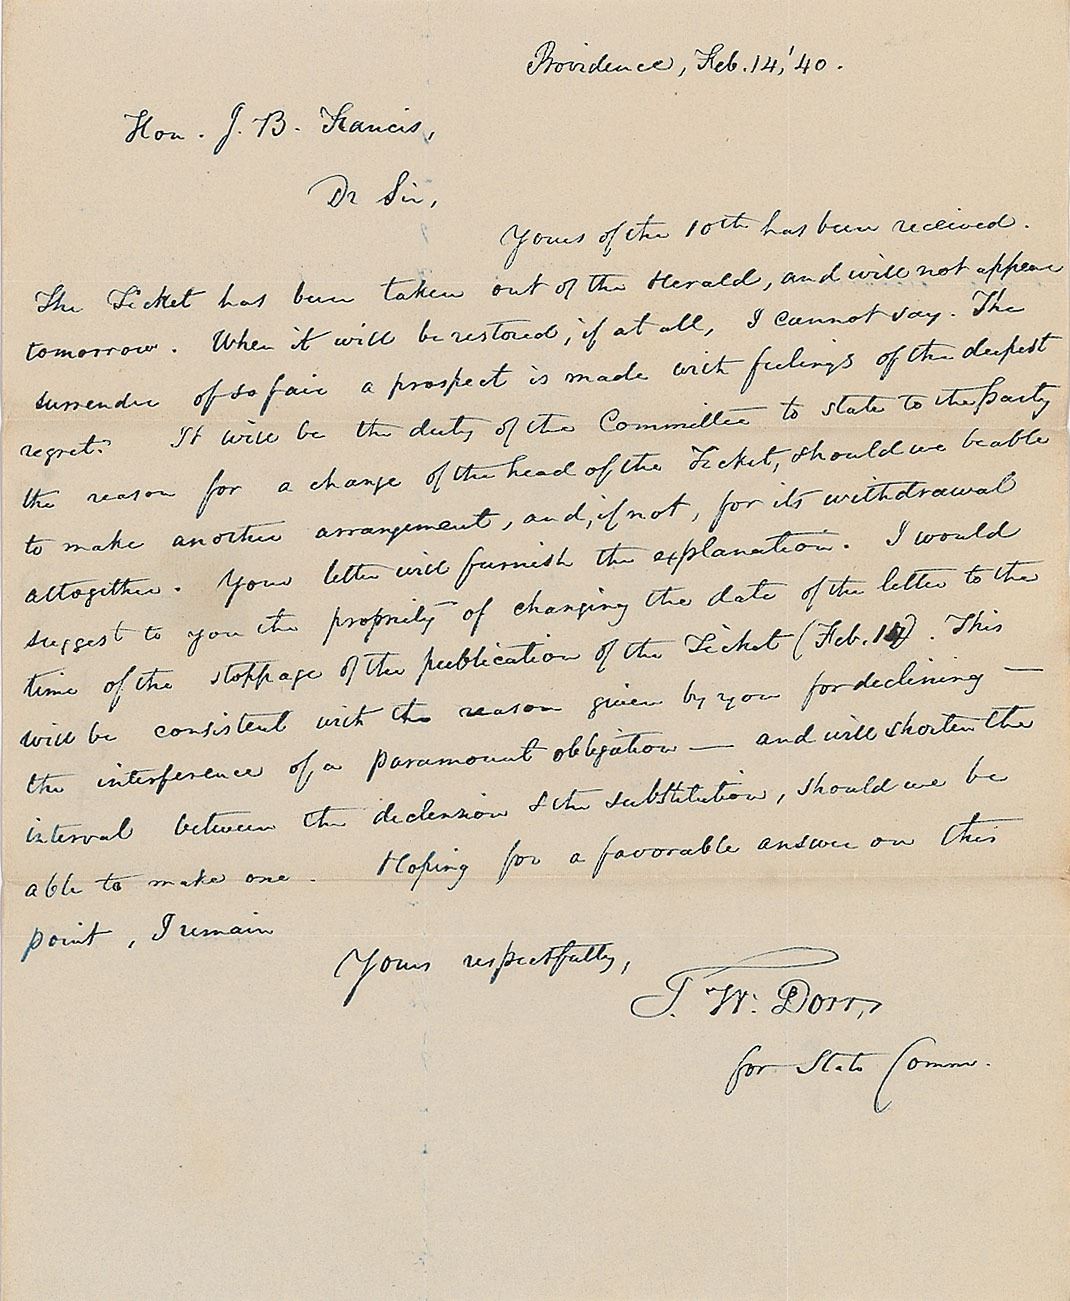 Providence, Feb. 14,' 40.
Hon. J. B. Francis,
Dr Sir,
Yours of the 10th has been received.
The Ticket has been taken out of the Herald, and will not appear
tomorrow. When it will be restored, if at all, I cannot say. The
surrender of so fair a prospect is made with feelings of the deepest
regret. It will be the duty of the Committee to state to the Party
the reason for a change of the head of the Ticket, should we be able
to make another arrangement, and, if not, for its withdrawal
altogether. Your letter will furnish the explanation. I would
suggest to you the propriety of changing the date of the letter to the
time of the stoppage of the publication of the Ticket (Feb. 14). This
will be consistent with the reason given by you for declining —
the interference of a paramount obligation — and will shorten the
interval between the declension & the substitution, should we be
able to make one. Hoping for a favorable answer on this
point, I remain
Yours respectfully,
T. W. Dorr,
for State Comm.